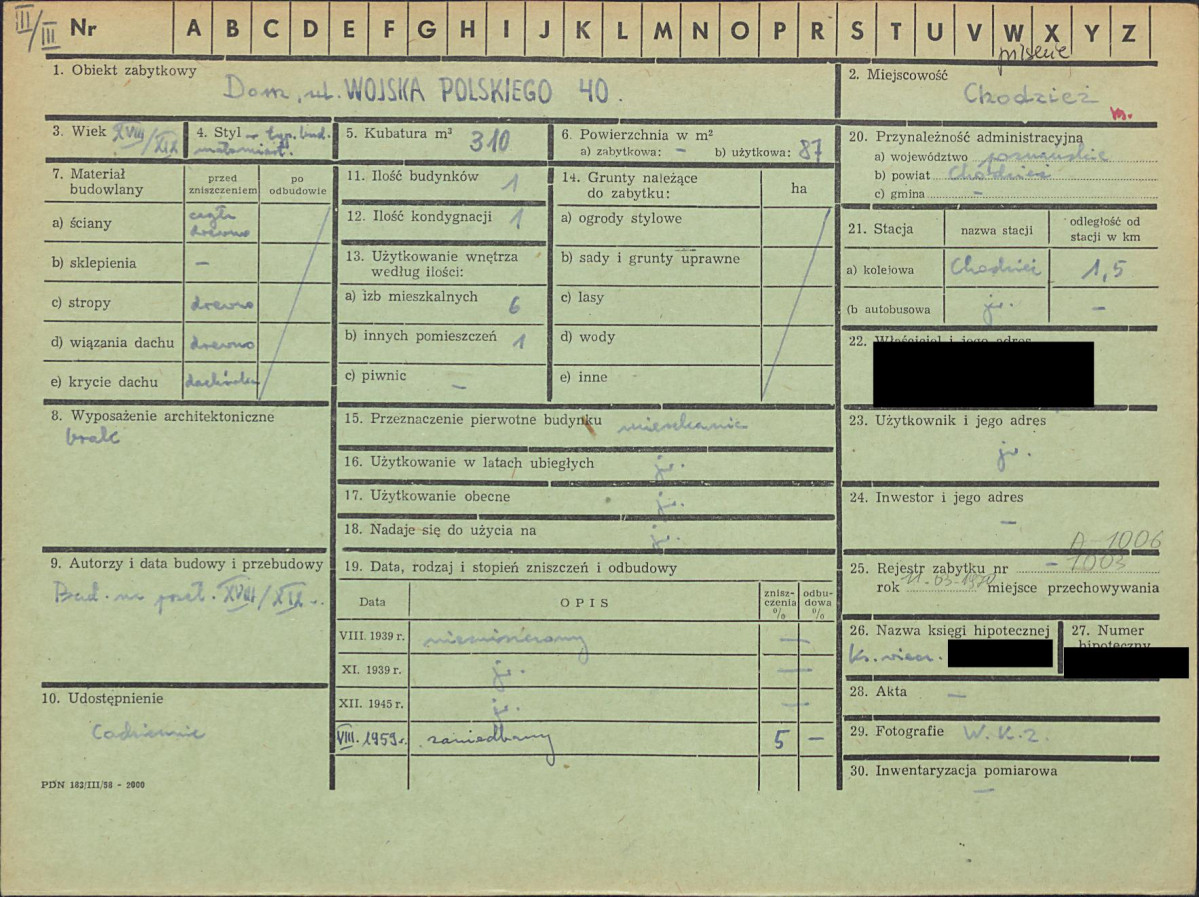 III/III Nr A B C D E F G H I J K L M N O P R S T U V W X Y Z
pilskie
1. Obiekt zabytkowy
Dom, ul. WOJSKA POLSKIEGO 40.
2. Miejscowość
Chodzież
m.
3. Wiek XVIII/XIX
4. Styl typ. bud.
małomiast.
5. Kubatura m³ 310
6. Powierzchnia w m²
a) zabytkowa: – b) użytkowa: 87
7. Materiał budowlany
przed zniszczeniem
po odbudowie
a) ściany
cegła
drewno
b) sklepienia –
c) stropy drewno
d) wiązania dachu drewno
e) krycie dachu dachówka
8. Wyposażenie architektoniczne
brak
9. Autorzy i data budowy i przebudowy
Bud. na przeł. XVIII/XIX w.
10. Udostępnienie
Codziennie
PDN 183/III/58 - 2000
11. Ilość budynków 1
12. Ilość kondygnacji 1
13. Użytkowanie wnętrza
według ilości:
a) izb mieszkalnych 6
b) innych pomieszczeń 1
c) piwnic –
14. Grunty należące
do zabytku:
ha
a) ogrody stylowe
b) sady i grunty uprawne
c) lasy
d) wody
e) inne
15. Przeznaczenie pierwotne budynku mieszkanie
16. Użytkowanie w latach ubiegłych jw.
17. Użytkowanie obecne jw.
18. Nadaje się do użycia na jw.
19. Data, rodzaj i stopień zniszczeń i odbudowy
Data
OPIS
znisz-
czenia
%
odbu-
dowa
%
VIII. 1939 r. niezniszczony –
XI. 1939 r. jw. –
XII. 1945 r. jw. –
VIII. 1959 r. zaniedbany 5 –
20. Przynależność administracyjna
a) województwo poznańskie
b) powiat Chodzież
c) gmina –
21. Stacja
nazwa stacji
odległość od
stacji w km
a) kolejowa Chodzież 1,5
(b autobusowa jw. –
22. Właściciel i jego adres
23. Użytkownik i jego adres
jw.
24. Inwestor i jego adres
–
A-1006
25. Rejestr zabytku nr – 1003
rok 11-03-1970 miejsce przechowywania
26. Nazwa księgi hipotecznej
Ks. wiecz.
27. Numer
hipoteczny
28. Akta –
29. Fotografie W.K.Z.
30. Inwentaryzacja pomiarowa
–